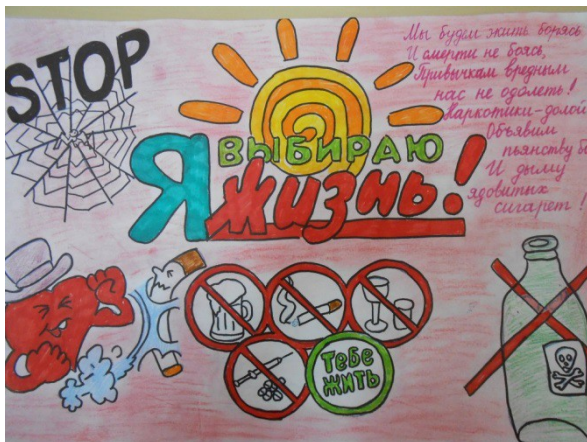 STOP
Мы будем жить борясь
И смерти не боясь,
Привычкам вредным
нас не одолеть!
Наркотики-долой
Объявим
пьянству б
И дыму
ядовитых
сигарет!
Я ВЫБИРАЮ
жизнь!
Тебе
ЖИТЬ